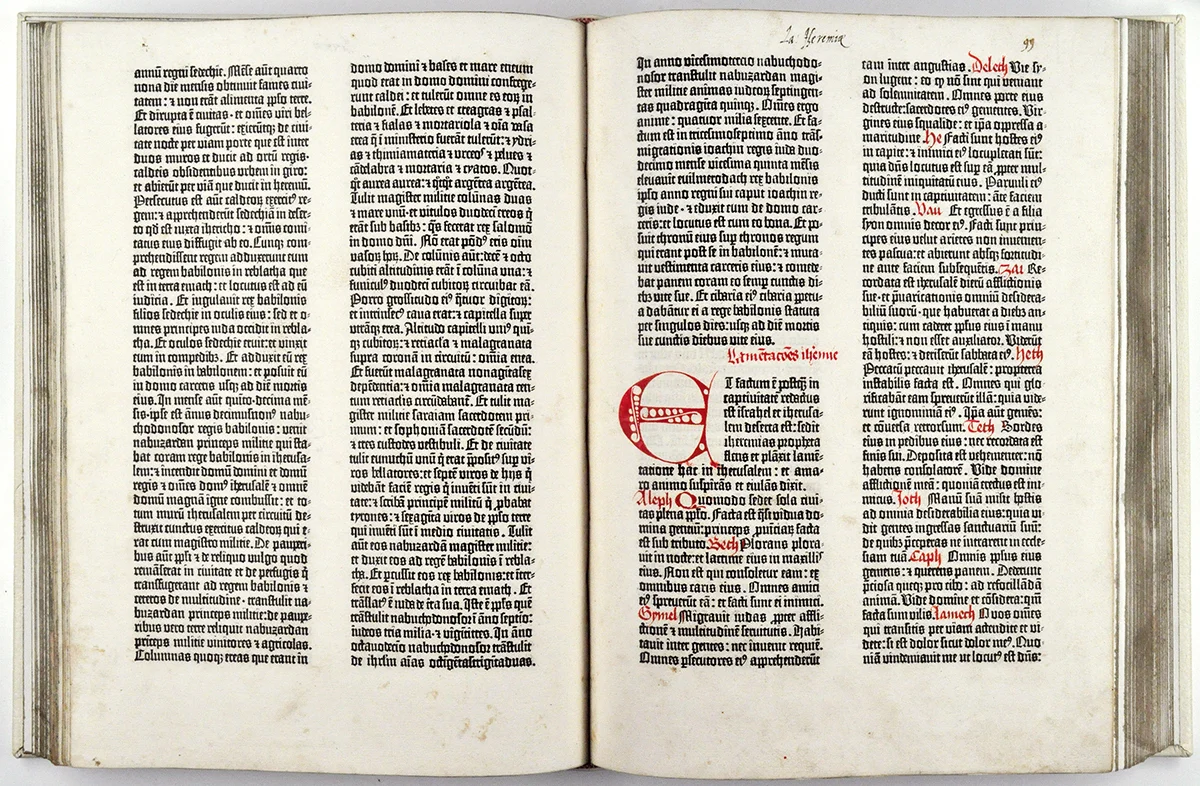 La. Jeremiæ
99
annū regni sedechie. Mēse aūt quarto
nona die mensis obtinuit fames civi-
tatem: ⁊ non erāt alimenta pp̄lo terre.
Et dirupta ē civitas · et om̄es viri bel-
latores eius fugerūt: exierūtq; de civi-
tate nocte per viam porte que est inter
duos muros et ducit ad ortū regis ·
caldeis obsidentibus urbem in giro:
et abierūt per viā que ducit in heremū.
Persecutus est aūt caldeoꝝ exercitꝰ re-
gem: ⁊ apprehenderūt sedechiā in deser-
to qđ est iuxta ihericho: ⁊ om̄is comi-
tatus eius diffugit ab eo. Cunq; com-
prehendissent regem adduxerunt eum
ad regem babilonis in reblatha que
est in terra emath: et locutus est ad eū
iudicia. Et iugulavit rex babilonis
filios sedechie in oculis eius: sed et o-
mnes principes iuda occidit in rebla-
tha. Et oculos sedechie eruit: et vinxit
eum in compedibꝫ. Et adduxit eū rex
babilonis in babilonem: et posuit eū
in domo carceris usq; ad diē mortis
eius. In mense aūt quīto · decima mē-
sis · ipse est ānus decimusnonꝰ nabu-
chodonosor regis babilonis: venit
nabuzardan princeps militie qui sta-
bat coram rege babilonis in iherusa-
lem: ⁊ incendit domū domini et domū
regis ⁊ om̄es domꝰ iherusalē ⁊ omnē
domū magnā igne combussit: et to-
tum murū iherusalem per circuitū de-
struxit cunctus exercitus caldeoꝝ qui e-
rat cum magistro militie. De pauperi-
bus aūt pp̄li ⁊ de reliquo vulgo quod
remāserat in civitate et de perfugis q̄
transfugerant ad regem babilonis ⁊
ceteros de multitudine · transtulit na-
buzardan princeps militie: de paupe-
ribus vero terre reliquit nabuzardan
princeps militie vinitores ⁊ agricolas.
Columnas quoq; ereas que erant in
domo domini ⁊ bases et mare eneum
quod erat in domo domini confrege-
runt caldei: et tulerūt omne es eoꝝ in
babilonē. Et lebetes et creagras ⁊ psal-
teria ⁊ fialas ⁊ mortariola ⁊ oīa vasa
erea q̄ ī ministerio fuerāt tulerūt: ⁊ ydri-
as ⁊ thimiamateria ⁊ urceos ⁊ pelves ⁊
cādelabra ⁊ mortaria ⁊ cyatos. Quot-
q̄t aurea aurea: ⁊ q̄tq̄t argētea argētea.
Tulit magister militie colūnas duas
⁊ mare unū · et vitulos duodeci ereos q̄
erāt sub basibꝫ: q̄s fecerat rex salomō
in domo dn̄i. Nō erat pōdꝰ eris oīm
vasoꝝ hoꝝ. De colūnis aūt: decē ⁊ octo
cubiti altitudinis erāt ī colūna una: ⁊
funiculꝰ duodeci cubitoꝝ circuibat eā.
Porro grossitudo eiꝰ q̄tuor digitoꝝ:
et intrinsecꝰ cava erat: ⁊ capitella super
utrāq; erea. Altitudo capitelli uniꝰ quī-
q; cubitoꝝ: ⁊ retiacla ⁊ malagranata
supra coronā in circuitu: omīa erea.
Et fuerūt malagranata nonagītasex
depēdentia: ⁊ om̄ia malagranata cen-
tum retiaclis circūdabanē. Et tulit ma-
gister militie saraiam sacerdotem pri-
mum: et sophoniā sacerdotē secūdū:
⁊ tres custodes vestibuli. Et de civitate
tulit eunuchū unū q̄ erat p̄positꝰ sup viros
bellatores: et septē viros de hijs q̄
videbāt faciē regis q̄ inuēti sūt in civi-
tate: ⁊ scribā principē militū q̄ ꝓbabat
tyrones: ⁊ sexagīta viros de pp̄lo terre
qui inuēti sūt ī medio civitatis. Tulit
aūt eos nabuzardā magister militie:
et duxit eos ad regē babilonis ī rebla-
tha. Et ꝑcussit eos rex babilonis: et iter-
fecit eos ī reblatha in terra emath. Et
trāslatꝰ ē iuda de t̄ra sua. Iste ē pp̄lus quē
trāstulit nabuchodonosor: ī āno septīo:
iudeos tria milia · ⁊ vigītitres. In āno
octavodecio nabuchodonosor trāstulit
de ihrlm aīas octīgētastrigītaduas.
In anno vicesimotercio nabuchodo-
nosor transtulit nabuzardan magi-
ster militie animas iudeoꝝ septingen-
tas quadraginta quinq;. Om̄es ergo
anime: quatuor milia sexcente. Et fa-
ctum est in tricesimoseptimo āno trās-
migrationis ioachin regis iuda · duo-
decimo mense vicesima quinta mēsis
elevavit euilmerodach rex babilonis
ipso anno regni sui caput ioachin re-
gis iude · ⁊ eduxit eum de domo car-
ceris: et locutus est cum eo bona. Et po-
suit thronū eius sup thronos regum
qui erant post se in babilonē: ⁊ muta-
vit vestimenta carceris eius: ⁊ comede-
bat panem coram eo semp cunctis di-
ebꝫ vite sue. Et cibaria eiꝰ cibaria ꝑpetu-
a dabātur ei a rege babilonis statuta
per singulos dies: usq; ad diē mortis
sue cunctis diebus vite eius.
Lamētacōes iheremie
Et factum ē postq̄ in
captivitatē redactus
est israhel et iherusa-
lem deserta est: sedit
iheremias propheta
flens et plāxit lamē-
tatione hāc in iherusalem: et ama-
ro animo suspirās et eiulās dixit.
Aleph Quomodo sedet sola civi-
tas plena pp̄lo. Facta est q̄si vidua do-
mina gentiū: princeps ꝓuīciaꝝ facta
est sub tributo. Beth Plorans plora-
vit in nocte: et lacrime eius in maxillꝭ
eius. Non est qui consoletur eam: ex
omnibus caris eius. Omnes amici
eiꝰ spreverūt eā: et facti sunt ei inimici.
Gymel Migravit iudas ꝓpter affli-
ctionē ⁊ multitudinē servitutis. Habi-
tavit inter gentes: nec invenit requiē.
Omnes ꝑsecutores eiꝰ apprehenderūt
eam inter angustias. Deleth Vie sy-
on lugent: eo qꝰ nō sint qui veniant
ad solemnitatem. Omnes porte eius
destructe: sacerdotes eiꝰ gementes. Vir-
gines eius squalide: et ip̄a oppressa a-
maritudine. He Facti sunt hostes eiꝰ
in capite: ⁊ inimici eiꝰ locupletati sūt:
quia dn̄s locutus est sup eā ꝓpter mul-
titudinē iniquitatū eius. Parvuli eiꝰ
ducti sunt in captivitatem: āte faciem
tribulātis. Vau Et egressus ē a filia
syon omnis decor eiꝰ. Facti sunt prin-
cipes eius velut arietes non invenien-
tes pascua: et abierunt absq; fortitudi-
ne ante faciem subsequētis. Zai Re-
cordata est iherusalē dierū afflictionis
sue · et p̄varicationis omniū desidera-
biliū suorū · que habuerat a diebꝫ an-
tiquis: cum caderet pp̄lus eius ī manu
hostili: ⁊ non esset auxiliator. Viderūt
eā hostes: ⁊ deriserūt sabbata eiꝰ. Heth
Peccatū peccavit iherusalē: propterea
instabilis facta est. Omnes qui glo-
rificabāt eam spreverūt illā: quia vide-
runt ignominiā eiꝰ. Ip̄a aūt gemēs:
et cōversa retrorsum. Teth Sordes
eius in pedibus eius: nec recordata est
finis sui. Deposita est vehementer: nō
habens consolatorē. Vide domine
afflictionē meā: quoniā erectus est ini-
micus. Joth Manū suā misit hostis
ad omnia desiderabilia eius: quia vi-
dit gentes ingressas sanctuariū suū:
de quibꝫ p̄ceperas ne intrarent in eccle-
siam tuā. Caph Omnis pp̄lus eius
gemens: ⁊ querens panem. Dederunt
preciosa queq; pro cibo: ad refocillādā
animā. Vide domine et cōsidera: qm̄
facta sum vilis. Lamech O vos om̄es
qui transitis per viam attendite et vi-
dete: si est dolor sicut dolor meꝰ. Quo-
niā vindemiavit me ut locutꝰ est dn̄s: